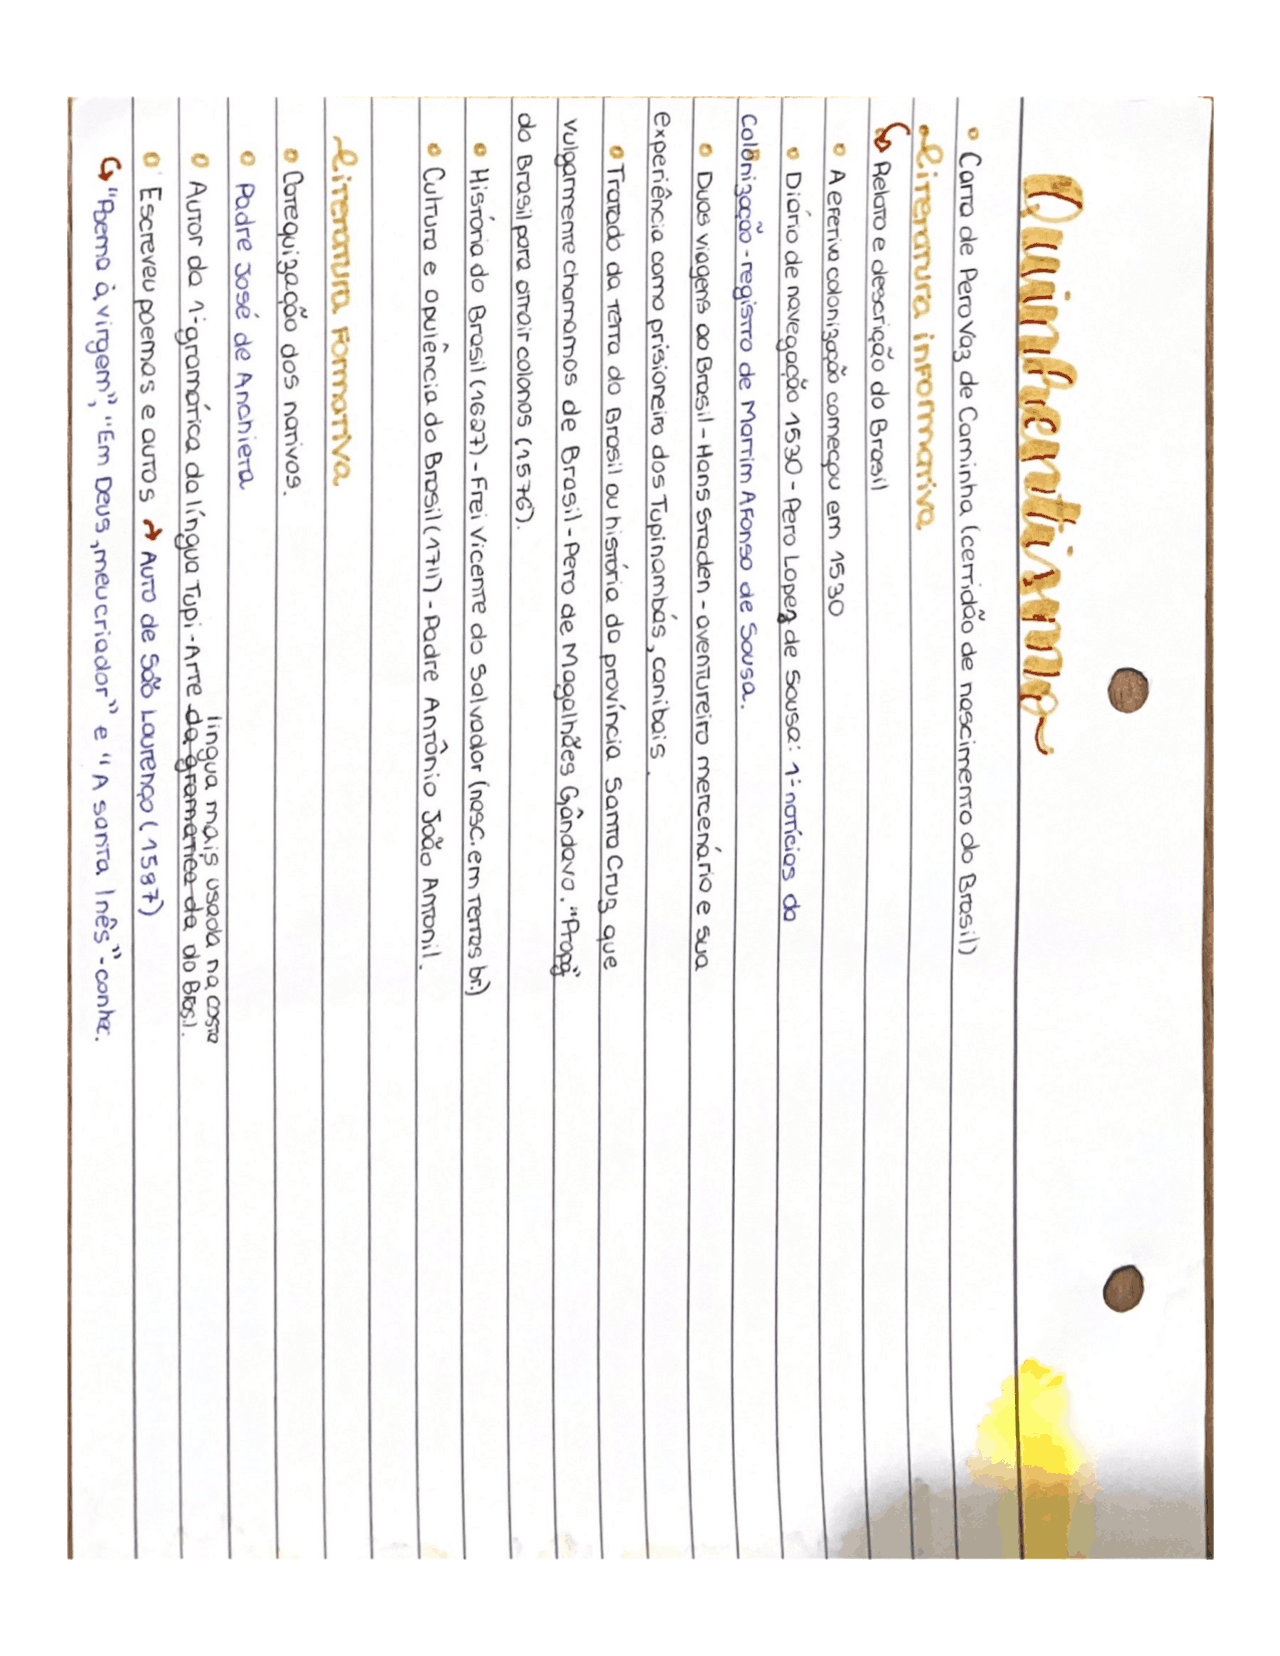 Quinhentismo
• Carta de Pero Vaz de Caminha (certidão de nascimento do Brasil)
Literatura informativa
↳ Relato e descrição do Brasil
• A efetiva colonização começou em 1530
• Diário de navegação 1530 - Pero Lopez de Sousa: 1ª notícias da
Colonização - registro de Martim Afonso de Sousa.
• Duas viagens ao Brasil - Hans Staden - aventureiro mercenário e sua
experiência como prisioneiro dos Tupinambás, canibais.
• Tratado da Terra do Brasil ou história da província Santa Cruz que
vulgarmente chamamos de Brasil - Pero de Magalhães Gândavo. "Propg"
do Brasil para atrair colonos (1576).
• História do Brasil (1627) - Frei Vicente do Salvador (nasc. em terras br.)
• Cultura e opulência do Brasil (1711) - Padre Antônio João Antonil.
Literatura Formativa
• Catequização dos nativos.
• Padre José de Anchieta
língua mais usada na costa
• Autor da 1ª gramática da língua Tupi - Arte da gramatica da do Bras).
• Escreveu poemas e autos → Auto de São Lourenço (1587)
↳ "Poema à virgem", "Em Deus, meu criador" e "A santa Inês" - conhec.